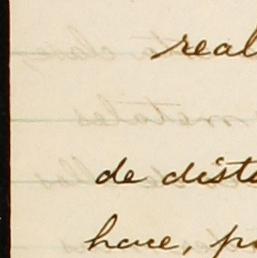 real
de dist
hace, p